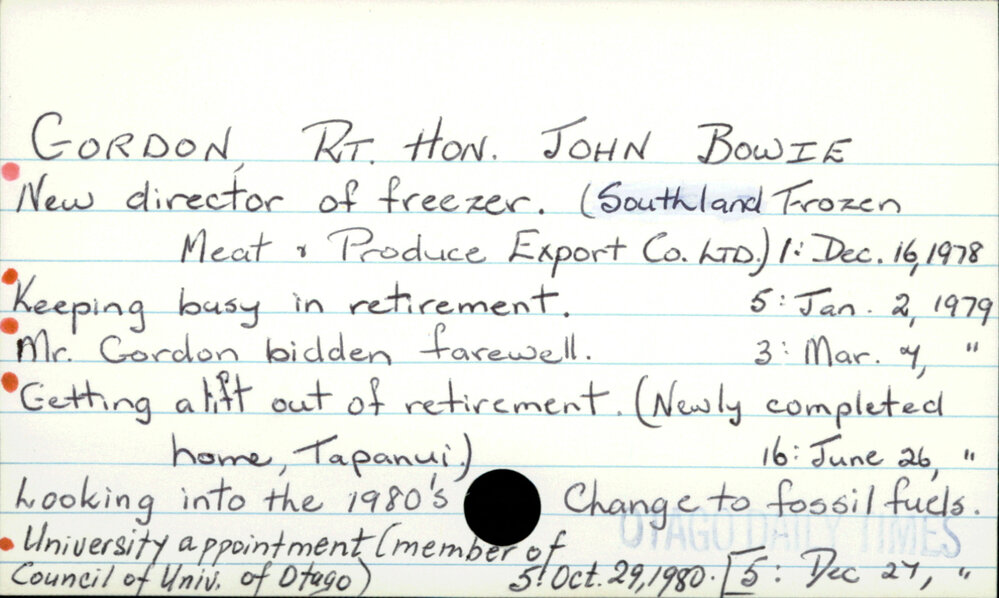 GORDON, RT. HON. JOHN BOWIE
New director of freezer. (Southland Frozen
Meat & Produce Export Co. LTD.) 1: Dec. 16, 1978
Keeping busy in retirement. 5: Jan. 2, 1979
Mr. Gordon bidden farewell. 3: Mar. 7, "
Getting a lift out of retirement. (Newly completed
home, Tapanui.) 16: June 26, "
Looking into the 1980's Change to fossil fuels.
OTAGO DAILY TIMES
University appointment (member of
Council of Univ. of Otago) 5: Oct. 29, 1980. [5: Dec 27, "